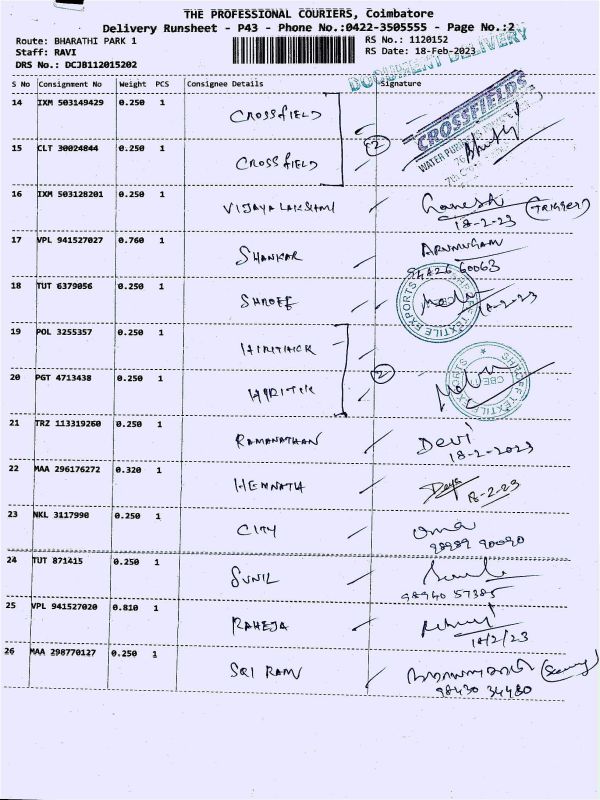 THE PROFESSIONAL COURIERS, Coimbatore
Delivery Runsheet - P43 - Phone No.:0422-3505555 - Page No.:2
Route: BHARATHI PARK 1 RS No.: 1120152
Staff: RAVI RS Date: 18-Feb-2023
DRS No.: DCJB112015202
DOCUMENT DELIVERY
S No Consignment No Weight PCS Consignee Details Signature
14 IXM 503149429 0.250 1 CROSSFIELD
CROSSFIELDS
WATER PURIFIERS
15 CLT 30024844 0.250 1 CROSSFIELD
2
16 IXM 503128201 0.250 1 VIJAYALAKSHMI Ganesh
18-2-23 (TRIGGER)
17 VPL 941527027 0.760 1 SHANKAR ARUMUGAM
94426 60063
18 TUT 6379056 0.250 1 SHROFF
SHROFF TEXTILE EXPORTS
18-2-23
19 POL 3255357 0.250 1 HIRITHICK
20 PGT 4713438 0.250 1 HIRITIK
2
SHROFF TEXTILE EXPORTS
CBE
21 TRZ 113319260 0.250 1 RAMANATHAN Devi
18-2-2023
22 MAA 296176272 0.320 1 HEMNATH
18-2-23
23 NKL 3117990 0.250 1 CITY Uma
98989 90090
24 TUT 871415 0.250 1 SUNIL
98940 57385
25 VPL 941527020 0.810 1 RAHEJA
18/2/23
26 MAA 298770127 0.250 1 SRI RAM
98430 34480